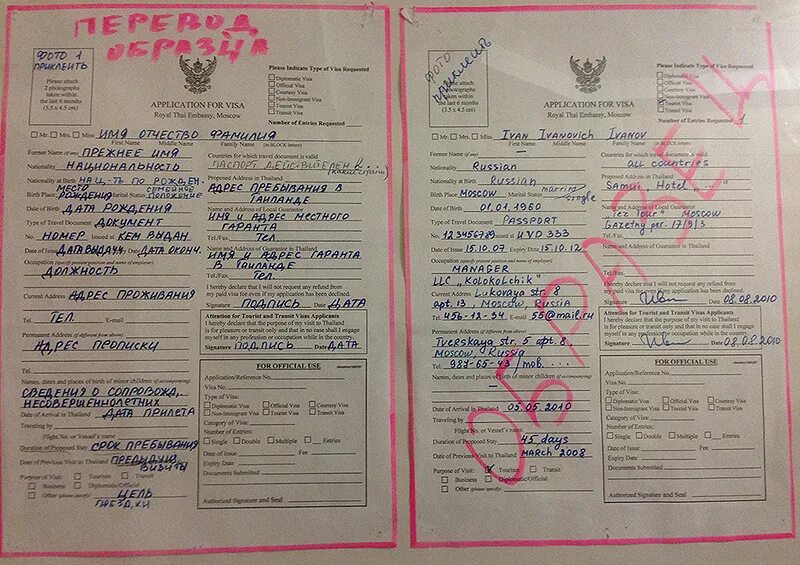 ПЕРЕВОД
ОБРАЗЦА
ФОТО 1
ПРИКЛЕИТЬ
Please attach
2 photographs
taken within
the last 6 months
(3.5 x 4.5 cm)
APPLICATION FOR VISA
Royal Thai Embassy, Moscow
Please Indicate Type of Visa Requested
Diplomatic Visa
Official Visa
Courtesy Visa
Non-Immigrant Visa
Tourist Visa
Transit Visa
Number of Entries Requested
Mr. Mrs. Miss ИМЯ ОТЧЕСТВО ФАМИЛИЯ
First Name Middle Name Family Name (in BLOCK letters)
Former Name (if any) ПРЕЖНЕЕ ИМЯ
Nationality НАЦИОНАЛЬНОСТЬ
Nationality at Birth НАЦ-ТЬ ПО РОЖДЕН.
Birth Place МЕСТО РОЖДЕНИЯ Marital Status СЕМЕЙНОЕ ПОЛОЖЕНИЕ
Date of Birth ДАТА РОЖДЕНИЯ
Type of Travel Document ДОКУМЕНТ
No. НОМЕР Issued at КЕМ ВЫДАН
Date of Issue ДАТА ВЫДАЧИ ДАТА ОКОНЧ.
Occupation (specify present position and name of employer)
ДОЛЖНОСТЬ
Current Address АДРЕС ПРОЖИВАНИЯ
Tel. ТЕЛ. E-mail
Permanent Address (if different from above)
АДРЕС ПРОПИСКИ
Tel.
Names, dates and places of birth of minor children (if accompanying)
СВЕДЕНИЯ О СОПРОВОЖД.
НЕСОВЕРШЕННОЛЕТНИХ
Date of Arrival in Thailand ДАТА ПРИЛЕТА
Traveling by
Flight No. or Vessel's name
Duration of Proposed Stay СРОК ПРЕБЫВАНИЯ
Date of Previous Visit to Thailand ПРЕДЫДУЩ. ВИЗИТЫ
Purpose of Visit: Tourism Transit
Business Diplomatic/Official
Other (please specify) ЦЕЛЬ
ПОЕЗДКИ
Countries for which travel document is valid
ПАСПОРТ ДЕЙСТВИТЕЛЕН В...
Proposed Address in Thailand
АДРЕС ПРЕБЫВАНИЯ В
ТАИЛАНДЕ
Name and Address of Local Guarantor
ИМЯ И АДРЕС МЕСТНОГО
ГАРАНТА
Tel./Fax. ТЕЛ
Name and Address of Guarantor in Thailand
ИМЯ И АДРЕС ГАРАНТА
В ТАИЛАНДЕ
Tel./Fax. ТЕЛ.
I hereby declare that I will not request any refund from
my paid visa fee even if my application has been declined.
Signature ПОДПИСЬ ДАТА
Attention for Tourist and Transit Visas Applicants
I hereby declare that the purpose of my visit to Thailand
is for pleasure or transit only and that in no case shall I engage
myself in any profession or occupation while in the country.
Signature ПОДПИСЬ Date ДАТА
FOR OFFICIAL USE
Application/Reference No.
Visa No.
Type of Visa:
Diplomatic Visa Official Visa Courtesy Visa
Non-Immigrant Visa Tourist Visa Transit Visa
Category of Visa:
Number of Entries:
Single Double Multiple Entries
Date of Issue Fee
Expiry Date
Documents Submitted
Authorized Signature and Seal
ОБРАЗЕЦ
ФОТО
Please attach
2 photographs
the last 6 months
(3.5 x 4.5 cm)
APPLICATION FOR VISA
Royal Thai Embassy, Moscow
Please Indicate Type of Visa Requested
Diplomatic Visa
Official Visa
Courtesy Visa
Non-Immigrant Visa
Tourist Visa
Transit Visa
Number of Entries Requested 1
Mr. Mrs. Miss Ivan Ivanovich Ivanov
First Name Middle Name Family Name (in BLOCK letters)
Former Name (if any) —
Nationality Russian
Nationality at Birth Russian
Birth Place Moscow Marital Status married single
Date of Birth 01.01.1960
Type of Travel Document PASSPORT
No. 123456789 Issued at UVD 333
Date of Issue 15.10.07 Expiry Date 15.10.12
Occupation (specify present position and name of employer)
MANAGER
LLC "Kolokolchik"
Current Address Lukovaya str. 8
apt. 13, Moscow, Russia
Tel. 456-12-34 E-mail 55@mail.ru
Permanent Address (if different from above)
Tverskaya str. 5 apt. 8,
Moscow, Russia
Tel. 987-65-43 / mob. ...
Names, dates and places of birth of minor children (if accompanying)
—
Date of Arrival in Thailand 05.05.2010
Traveling by
Flight No. or Vessel's name
Duration of Proposed Stay 45 days
Date of Previous Visit to Thailand MARCH 2008
Purpose of Visit: Tourism Transit
Business Diplomatic/Official
Other (please specify)
Countries for which travel document is valid
all countries
Proposed Address in Thailand
Samui, Hotel "..."
Name and Address of Local Guarantor
"Tez Tour" Moscow
Gazetny per. 17/9/3
Tel./Fax.
Name and Address of Guarantor in Thailand
Tel./Fax.
I hereby declare that I will not request any refund from
my paid visa fee even if my application has been declined.
Signature Date 08.08.2010
Attention for Tourist and Transit Visas Applicants
I hereby declare that the purpose of my visit to Thailand
is for pleasure or transit only and that in no case shall I engage
myself in any profession or occupation while in the country.
Signature Date 08.08.2010
FOR OFFICIAL USE
Application/Reference No.
Visa No.
Type of Visa:
Diplomatic Visa Official Visa Courtesy Visa
Non-Immigrant Visa Tourist Visa Transit Visa
Category of Visa:
Number of Entries:
Single Double Multiple Entries
Date of Issue Fee
Expiry Date
Documents Submitted
Authorized Signature and Seal